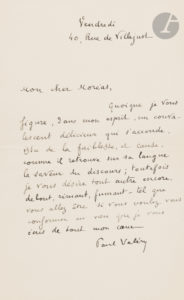 Vendredi
40, Rue de Villejust
Mon cher Moréas,
Quoique je vous
figure, dans mon esprit, un conva-
lescent délicieux qui s'accoude
de la faiblesse, et cause,
comme il retrouve sur sa langue
la saveur du discours, toutefois
je vous désire tout autre encore,
debout, rimant, fumant - tel que
vous allez être. Si vous voulez vous
conformer au vœu que je vous
fais de tout mon cœur
Paul Valéry